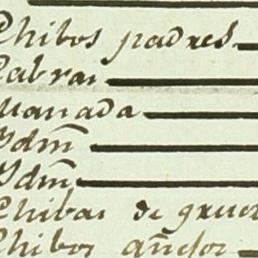 Chibos padres
Cabras
Manada
Ydm̃
Ydm̃
Chibas de
Chibos añejos